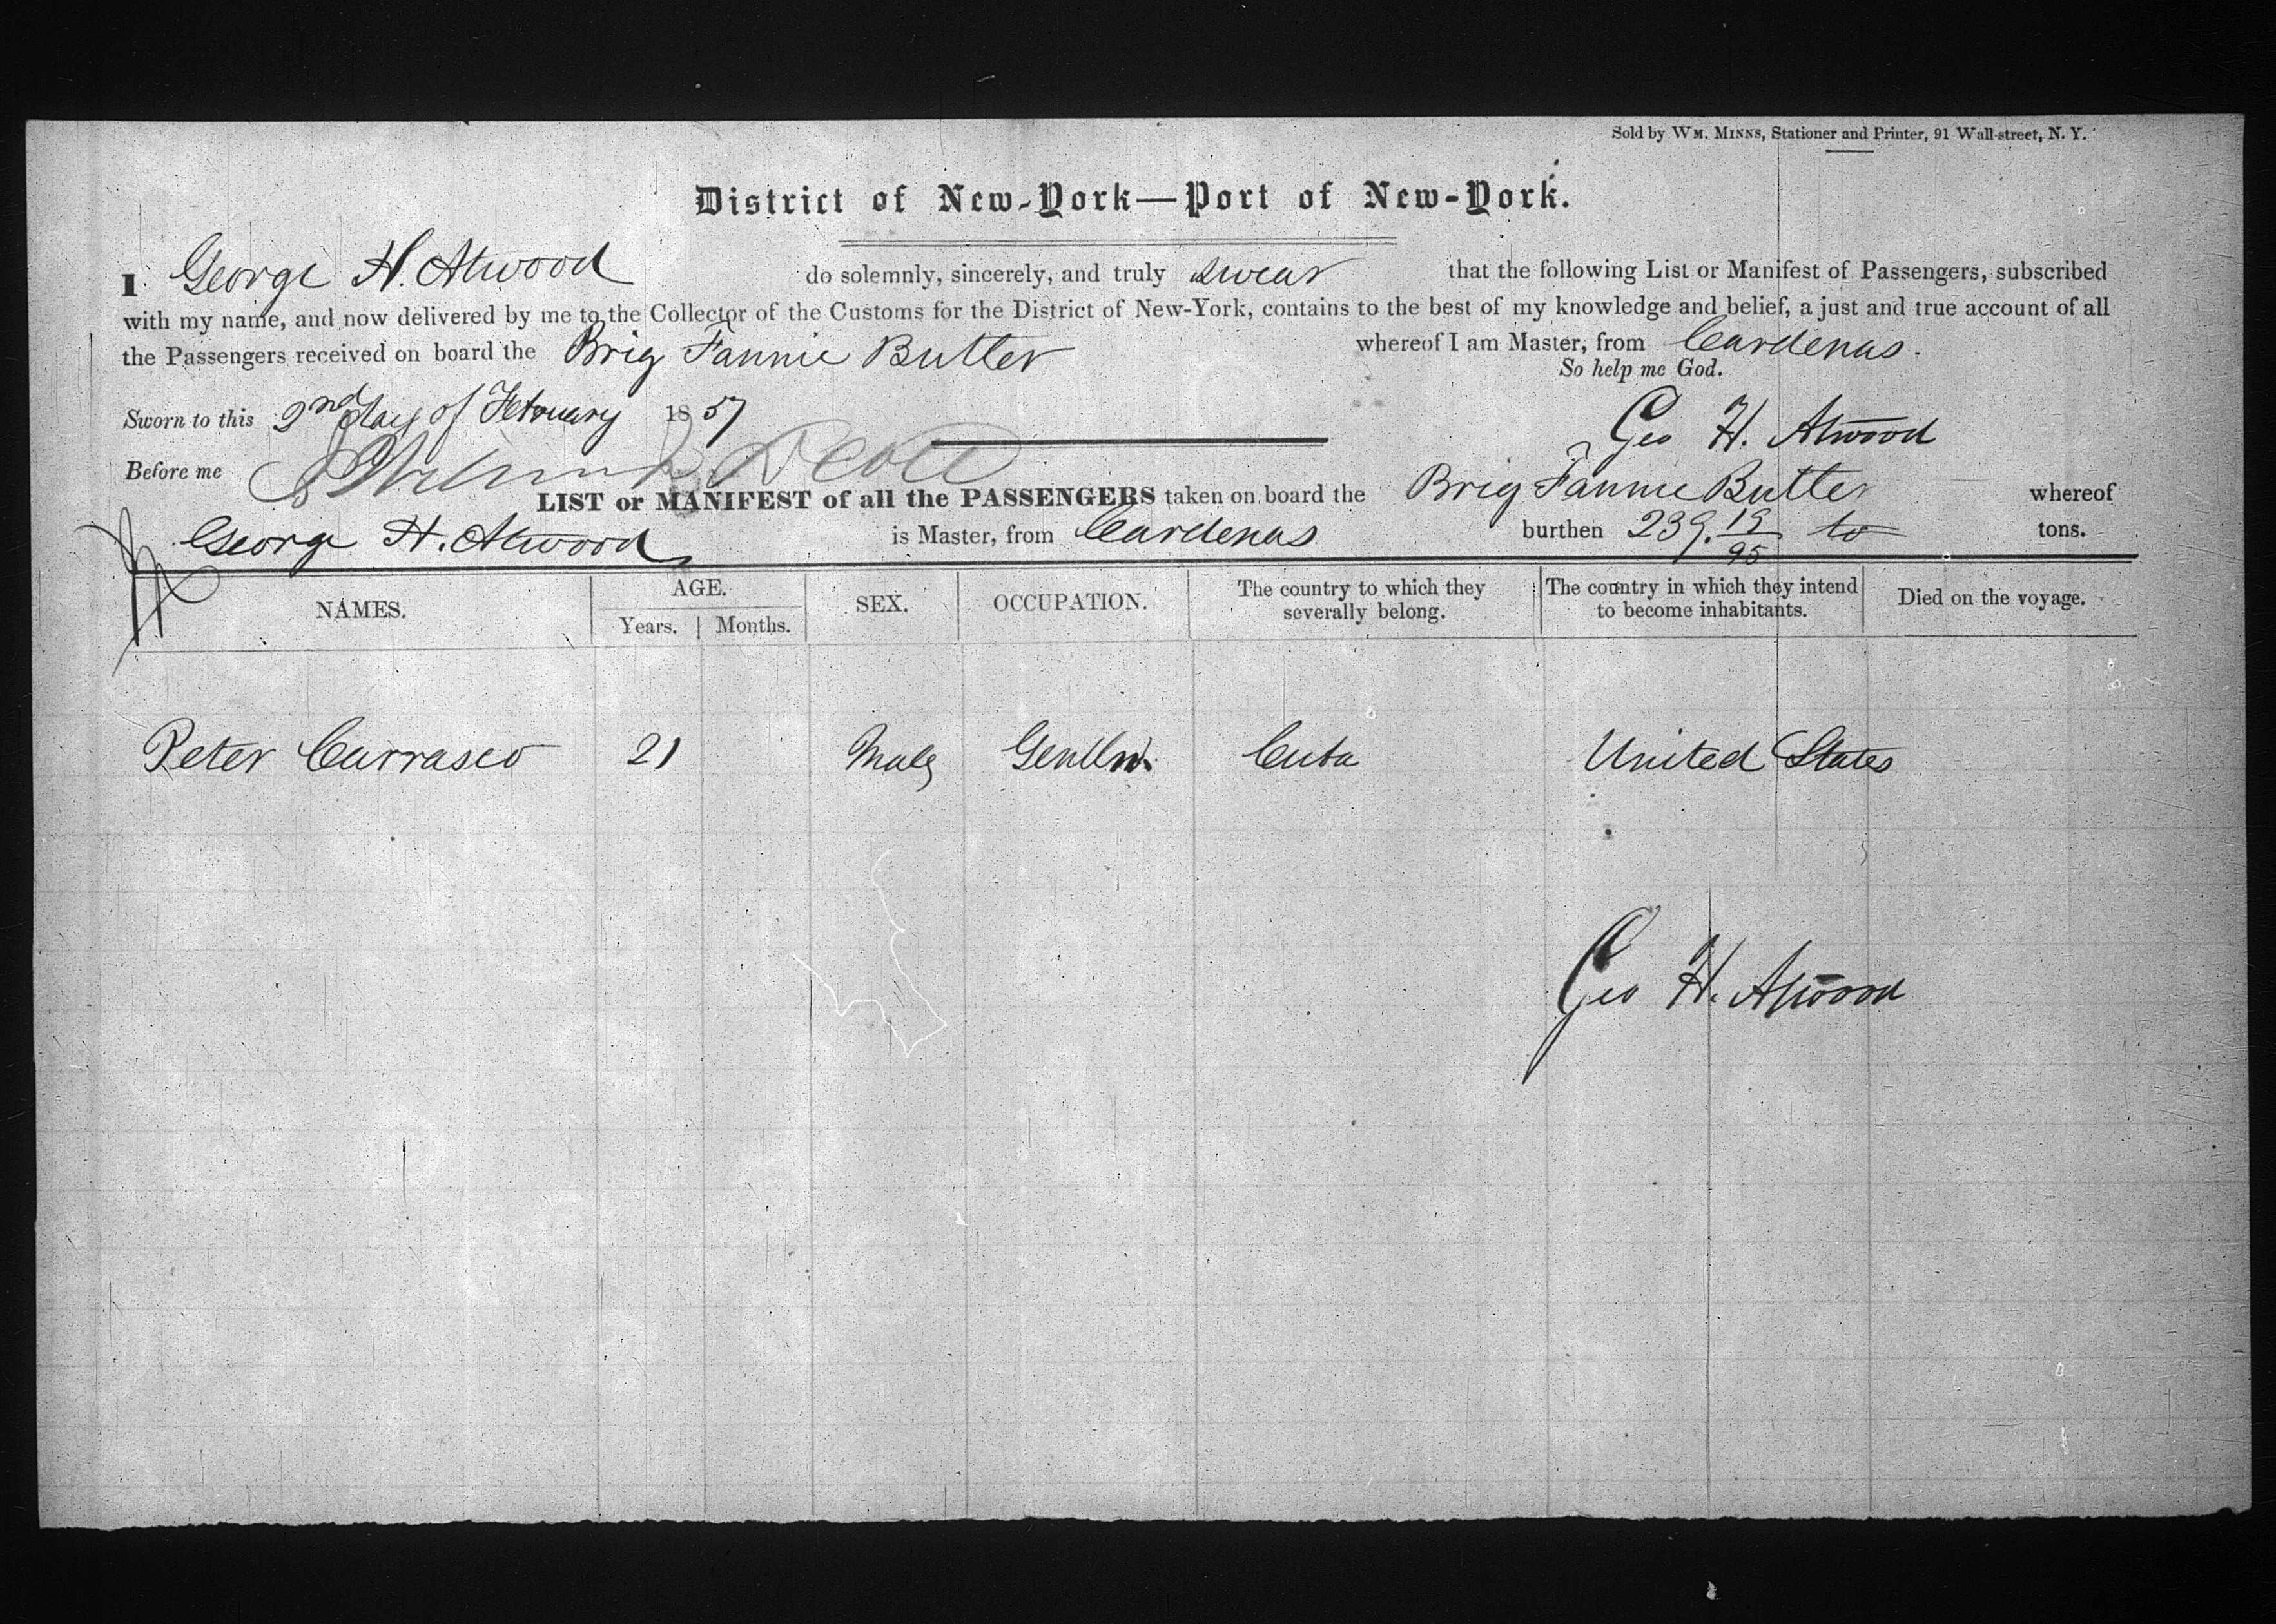 Sold by WM. MINNS, Stationer and Printer, 91 Wall-street, N. Y.
District of New-York—Port of New-York.
I George H. Atwood do solemnly, sincerely, and truly swear that the following List or Manifest of Passengers, subscribed
with my name, and now delivered by me to the Collector of the Customs for the District of New-York, contains to the best of my knowledge and belief, a just and true account of all
the Passengers received on board the Brig Fannie Butler whereof I am Master, from Cardenas.
So help me God.
Sworn to this 2nd day of February 1857
Geo H. Atwood
Before me
LIST or MANIFEST of all the PASSENGERS taken on board the Brig Fannie Butler whereof
George H. Atwood is Master, from Cardenas burthen 239. 19/95 to tons.
NAMES. AGE. Years. Months. SEX. OCCUPATION. The country to which they severally belong. The country in which they intend to become inhabitants. Died on the voyage.
Peter Carrasco 21 Male Gentlm. Cuba United States
Geo H. Atwood